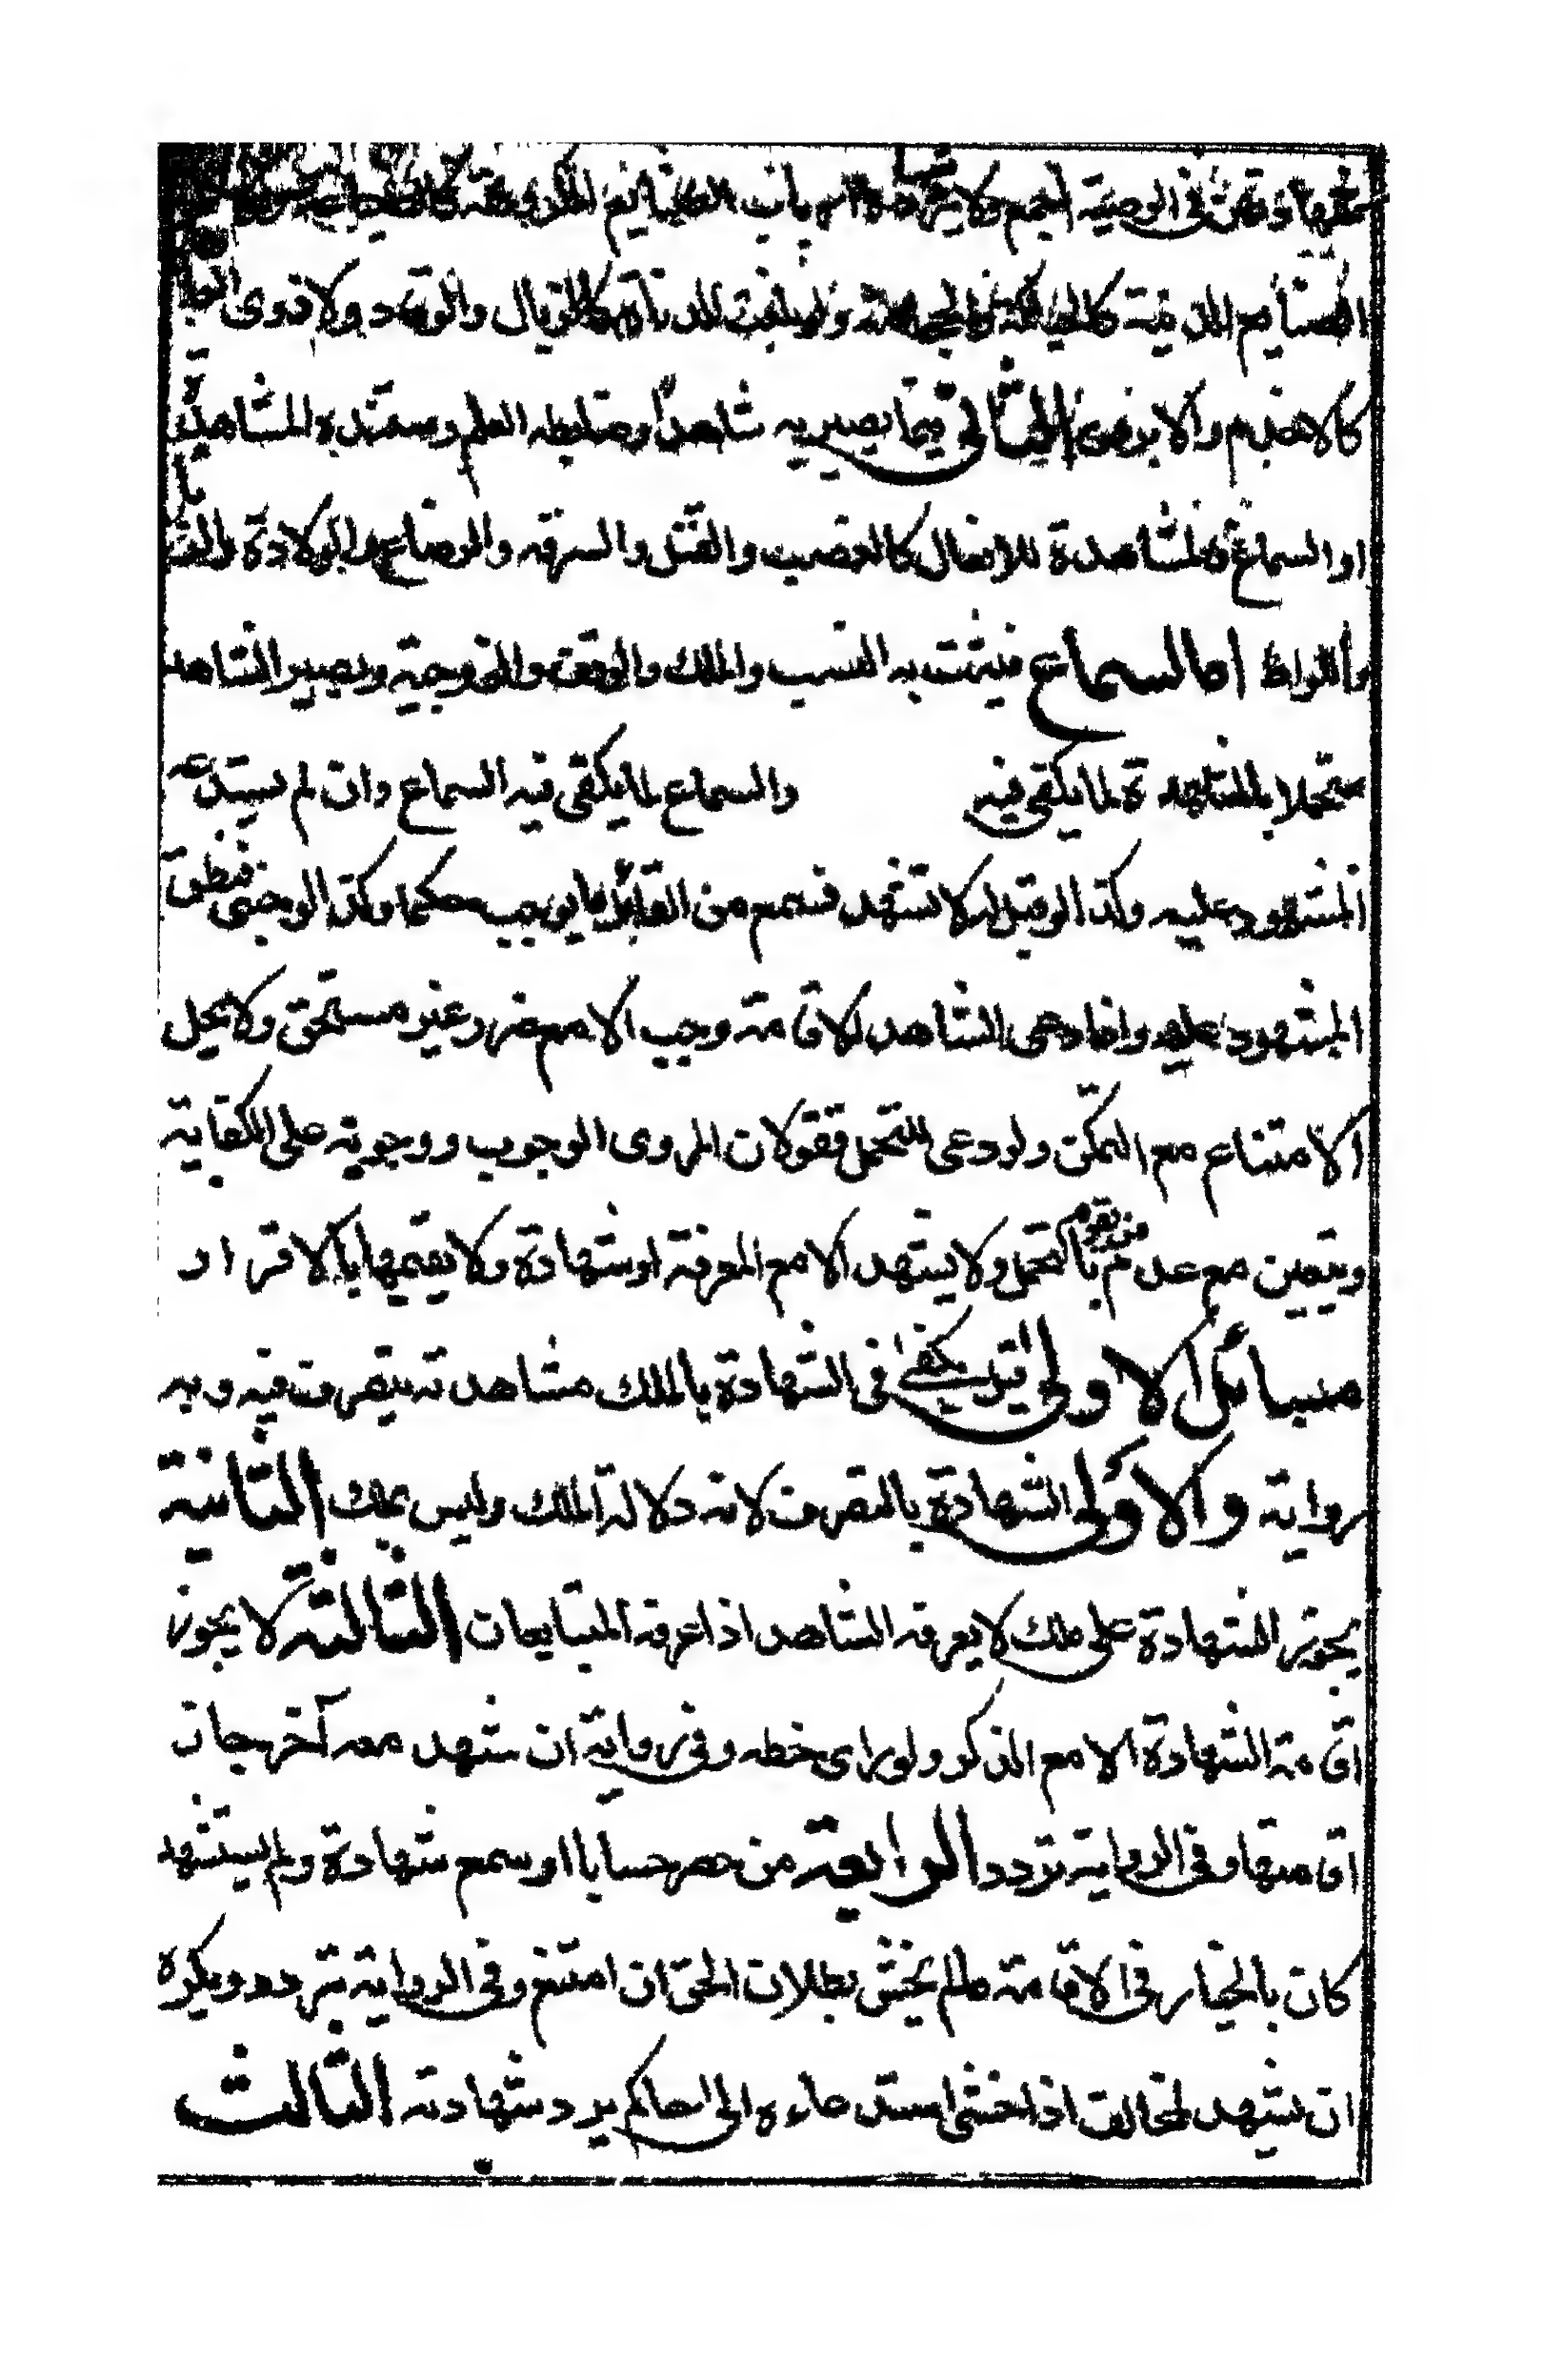 في الوصية ولا ارباب
الصنايع الدنية كالحياكة والحجامة ولو بلغت الدناءة كالزبال والوقاد ولا ذوى العا
كالاجذم والابرص الثانى فيما يصير به شاهدا وضابطه العلم ومستنده المشاهدة
او السماع فالمشاهدة للافعال كالغصب والقتل والسرقه والرضاع والولادة والزنا
واللواط اما السماع فيثبت به النسب والملك والوقف والزوجية ويصير الشاهد
متحملا بالمشاهدة لما يكفى فيه والسماع لما يكفى فيه السماع وان لم يستدعه
المشهود عليه وكذا لو قيل له لا تشهد فسمع من القايل ما يوجب حكما وكذا لو خبى فنطق
المشهود عليه واذا دعى الشاهد للاقامة وجب الا مع ضرر غير مستحق ولا يحل
الامتناع مع التمكن ولو دعى للتحمل فقولان المروى الوجوب ووجوبه على الكفاية
ويتعين مع عدم من يقوم بالتحمل ولا يشهد الا مع المعرفة او شهادة ولا يقيمها بالاقرار
مسائل الاولى قد يكفى فى الشهادة بالملك مشاهدته يتصرف فيه وبه
رواية والاولى الشهادة بالتصرف لانه دلالة الملك وليس بملك الثانية
يجوز الشهادة على ملك لا يعرفه الشاهد اذا عرفه المتبايعان الثالثة لا يجوز
اقامة الشهادة الا مع الذكر ولو راى خطه وفى رواية ان شهد معه آخر جاز
اقامتها وفى الرواية تردد الرابعة من حضر حسابا او سمع شهادة ولم يستشهد
كان بالخيار فى الاقامة مالم يخش بطلان الحق ان امتنع وفى الرواية تردد ويكره
ان يشهد لمخالف اذا خشى استدعاءه الى الحاكم يرد شهادته الثالث